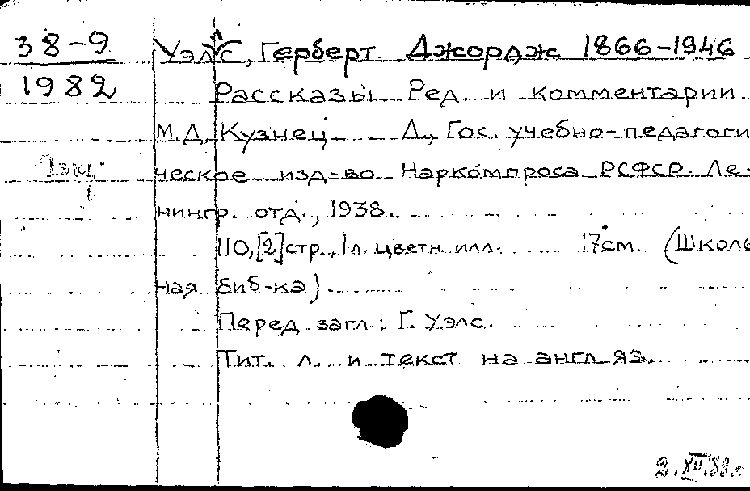 38-9
1982
Уэлс, Герберт Джордж 1866-1946
Рассказы. Ред. и комментарии
М.Д. Кузнец. Л., Гос. учебно-педагоги
ческое изд-во Наркомпроса РСФСР. Ле-
нингр. отд., 1938.
110,[2]стр., 1л. цветн. илл. 17см. (Школь
ная биб-ка)
Перед загл: Г. Уэлс.
Тит. л. и текст на англ яз.
2.XII.38г.